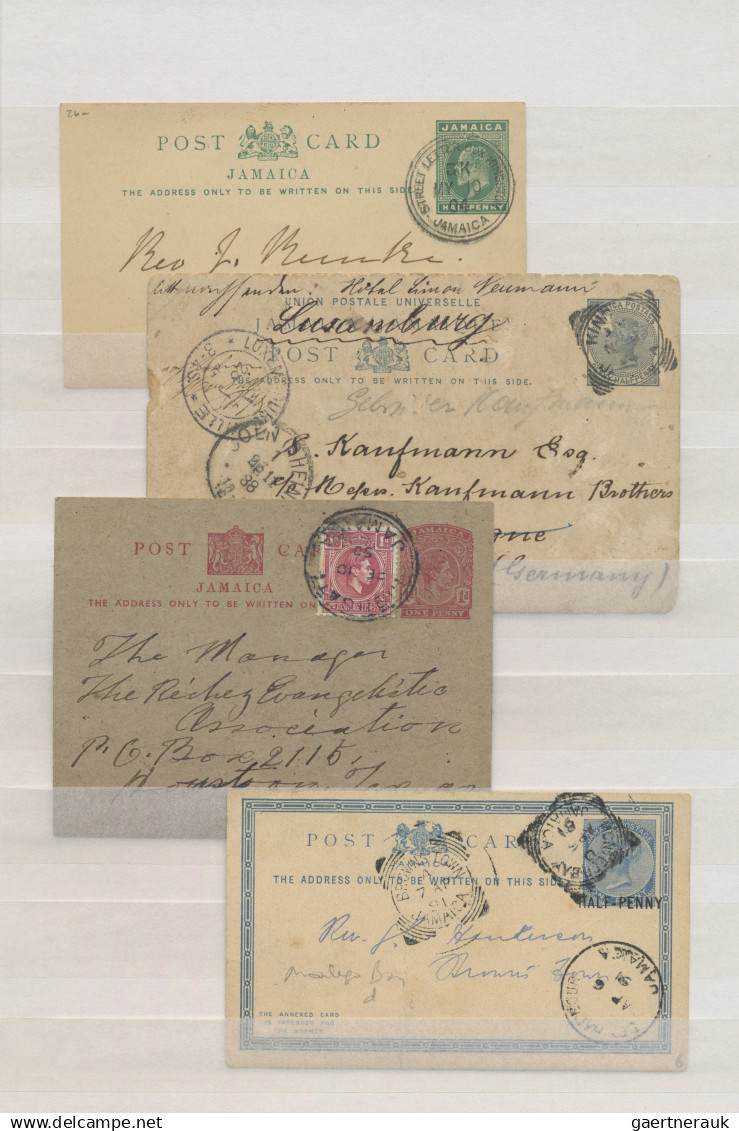 26-
POST CARD
JAMAICA
THE ADDRESS ONLY TO BE WRITTEN ON THIS SIDE.
JAMAICA
HALFPENNY
STREET LETTER
MY
04
JAMAICA
Rev J.
Hôtel Simon Neumann
UNION POSTALE UNIVERSELLE
JAMAICA
Luxemburg
POST CARD
THE ADDRESS ONLY TO BE WRITTEN ON THIS SIDE.
POSTAGE
HALFPENNY
VILLE
Gebrüder Kaufmann
S. Kaufmann Esq.
c/o Messrs. Kaufmann Brothers
(Germany)
POST
JAMAICA
THE ADDRESS ONLY TO BE WRITTEN ON
JAMAICA
ONE PENNY
JAMAICA
The Manager
The Richey Evangelistic
Association
P.O. Box 2115,
POST CARD
THE ADDRESS ONLY TO BE WRITTEN ON THIS SIDE.
HALF-PENNY
BROWNS TOWN
JAMAICA
JAMAICA
Rev. J. Henderson
Browns Town
Montego Bay
d
THE ANNEXED CARD
IS INTENDED FOR
THE ANSWER
JAMAICA
AP
6
91
6
delcampe.net
gaertnerauk